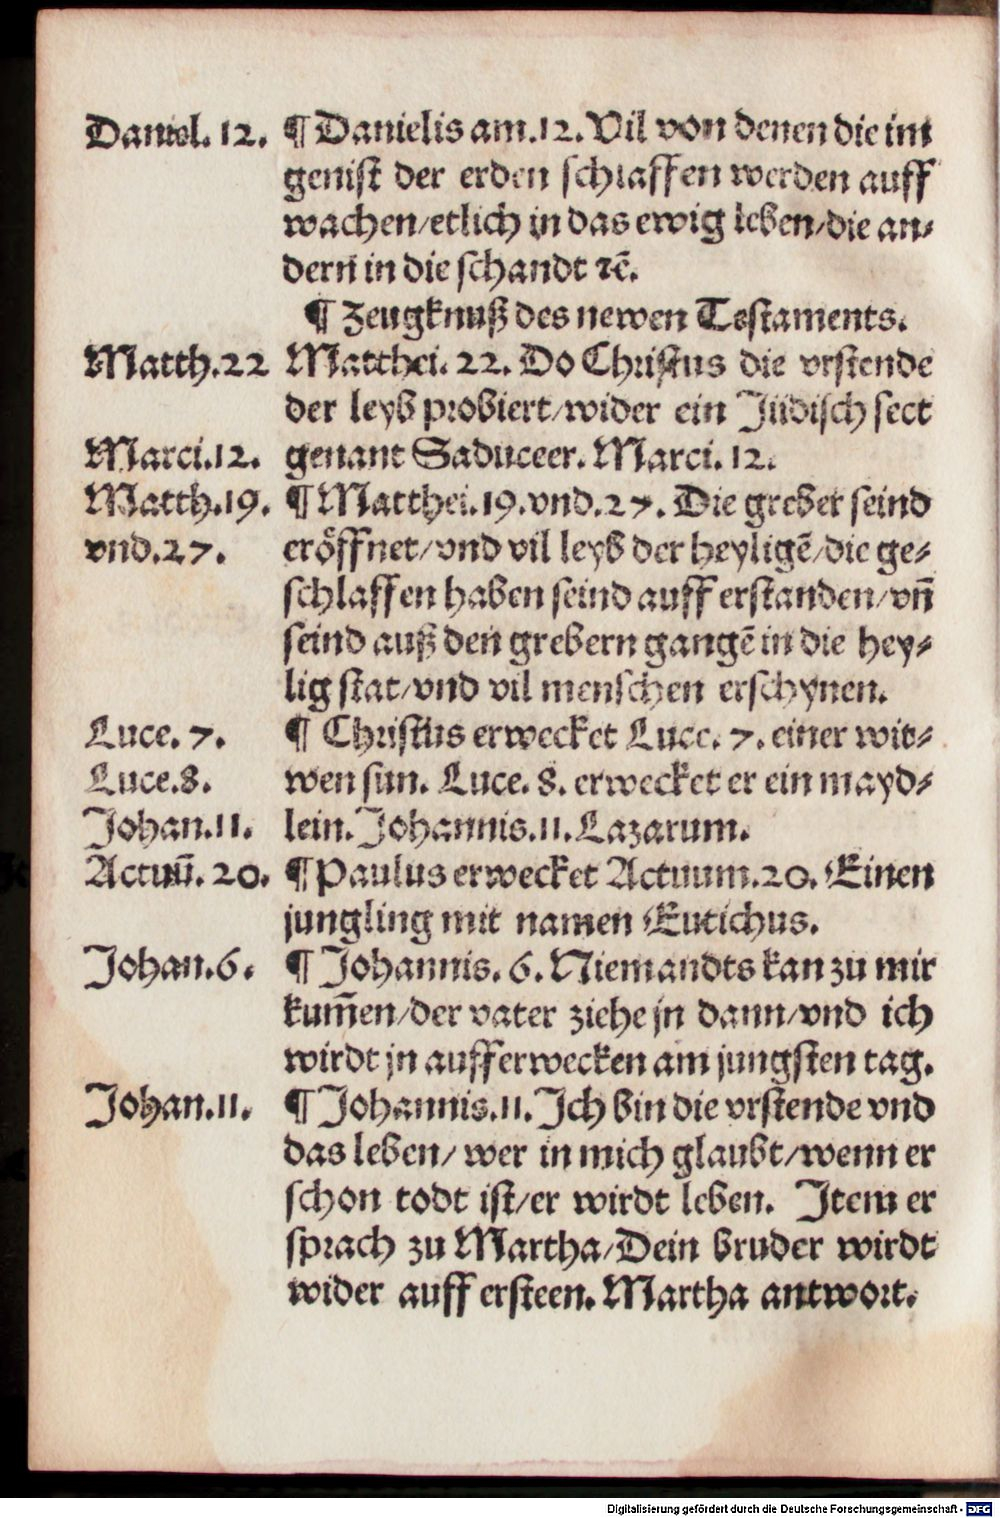 Daniel. 12. ¶ Danielis am.12. Vil von denen die im
genist der erden schlaffen werden auff
wachen/etlich in das ewig leben/die an⸗
dern in die schandt ⁊c̄.
¶ Zeugknuß des newen Testaments.
Matth.22 Matthei. 22. Do Christus die vrstende
der leyb probiert/wider ein Jüdisch sect
Marci.12. genant Saduceer. Marci. 12.
Matth.19. ¶ Matthei.19.vnd.27. Die greber seind
vnd.27. eröffnet/vnd vil leyb der heyligē/die ge⸗
schlaffen haben seind auff erstanden/vn̄
seind auß den grebern gangē in die hey⸗
lig stat/vnd vil menschen erschynen.
Luce. 7. ¶ Christus erwecket Luce. 7. einer wit⸗
Luce.8. wen sun. Luce. 8. erwecket er ein mayd⸗
Johan.11. lein. Johannis.11. Lazarum.
Actuū. 20. ¶ Paulus erwecket Actuum.20. Einen
jungling mit namen Eutichus.
Johan.6. ¶ Johannis. 6. Niemandts kan zu mir
kum̄en/der vater ziehe jn dann/vnd ich
wirdt jn aufferwecken am jungsten tag.
Johan.11. ¶ Johannis.11. Ich bin die vrstende vnd
das leben/ wer in mich glaubt/wenn er
schon todt ist/er wirdt leben. Item er
sprach zu Martha/Dein bruder wirdt
wider auff ersteen. Martha antwort.
Digitalisierung gefördert durch die Deutsche Forschungsgemeinschaft - DFG